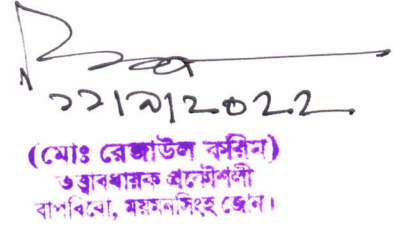 ১১|৯|২০২২
(মোঃ রেজাউল করিম)
তত্ত্বাবধায়ক প্রকৌশলী
বাপবিবো, ময়মনসিংহ জোন।